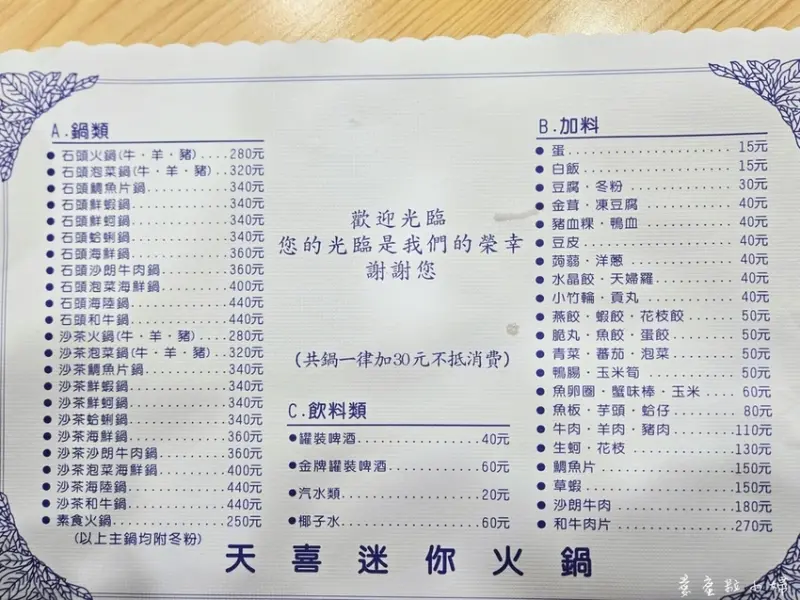 A.鍋類
石頭火鍋(牛·羊·豬)....280元
石頭泡菜鍋(牛·羊·豬)..320元
石頭鯛魚片鍋............340元
石頭鮮蝦鍋..............340元
石頭鮮蚵鍋..............340元
石頭蛤蜊鍋..............340元
石頭海鮮鍋..............360元
石頭沙朗牛肉鍋..........360元
石頭泡菜海鮮鍋..........400元
石頭海陸鍋..............440元
石頭和牛鍋..............440元
沙茶火鍋(牛·羊·豬)....280元
沙茶泡菜鍋(牛·羊·豬)..320元
沙茶鯛魚片鍋............340元
沙茶鮮蝦鍋..............340元
沙茶鮮蚵鍋..............340元
沙茶蛤蜊鍋..............340元
沙茶海鮮鍋..............360元
沙茶沙朗牛肉鍋..........360元
沙茶泡菜海鮮鍋..........400元
沙茶海陸鍋..............440元
沙茶和牛鍋..............440元
素食火鍋................250元
(以上主鍋均附冬粉)
歡迎光臨
您的光臨是我們的榮幸
謝謝您
(共鍋一律加30元不抵消費)
C.飲料類
罐裝啤酒................40元
金牌罐裝啤酒............60元
汽水類..................20元
椰子水..................60元
B.加料
蛋......................15元
白飯....................15元
豆腐·冬粉..............30元
金茸·凍豆腐............40元
豬血粿·鴨血............40元
豆皮....................40元
蒟蒻·洋蔥..............40元
水晶餃·天婦羅..........40元
小竹輪·貢丸............40元
燕餃·蝦餃·花枝餃......50元
脆丸·魚餃·蛋餃........50元
青菜·蕃茄·泡菜........50元
鴨腸·玉米筍............50元
魚卵圈·蟹味棒·玉米....60元
魚板·芋頭·蛤仔........80元
牛肉·羊肉·豬肉........110元
生蚵·花枝..............130元
鯛魚片..................150元
草蝦....................150元
沙朗牛肉................180元
和牛肉片................270元
天喜迷你火鍋